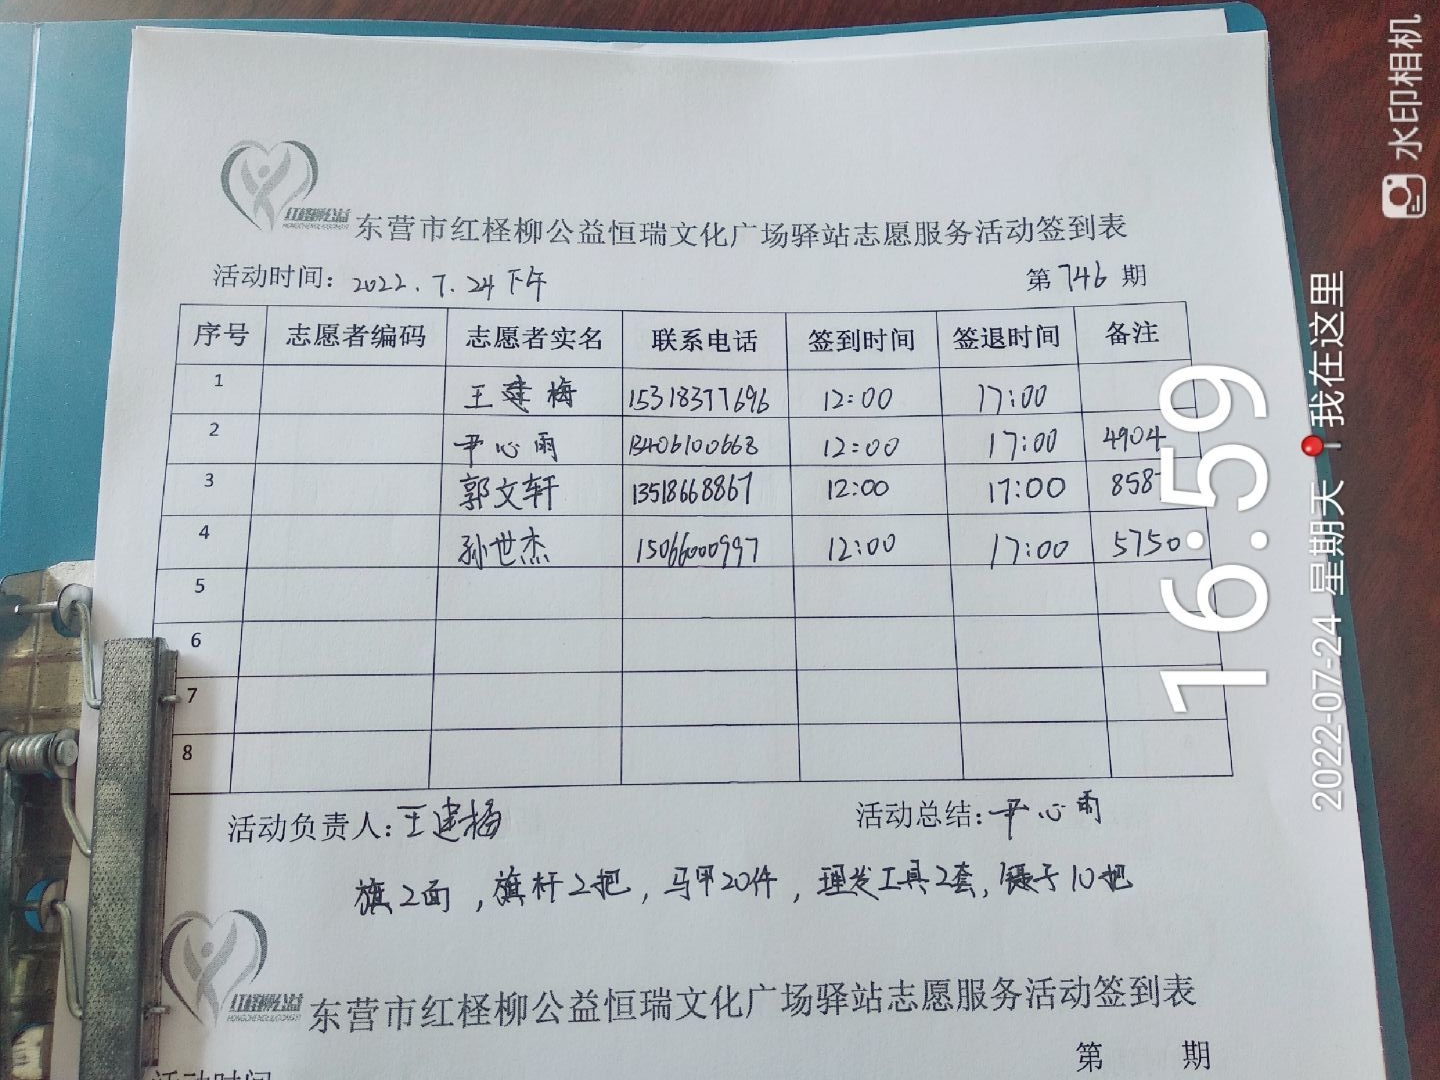 东营市红柽柳公益恒瑞文化广场驿站志愿服务活动签到表
活动时间: 2022.7.24下午 第746期
序号 志愿者编码 志愿者实名 联系电话 签到时间 签退时间 备注
1 王建梅 15318377696 12:00 17:00
2 尹心雨 13406100668 12:00 17:00 4904
3 郭文轩 13518668867 12:00 17:00 858
4 孙世杰 15066000997 12:00 17:00 5750
5
6
7
8
活动负责人:王建梅 活动总结:尹心雨
旗2面,旗杆2把,马甲20件,理发工具2套,镊子10把
东营市红柽柳公益恒瑞文化广场驿站志愿服务活动签到表
第 期
活动时间
16:59
2022-07-24 星期天 我在这里
水印相机